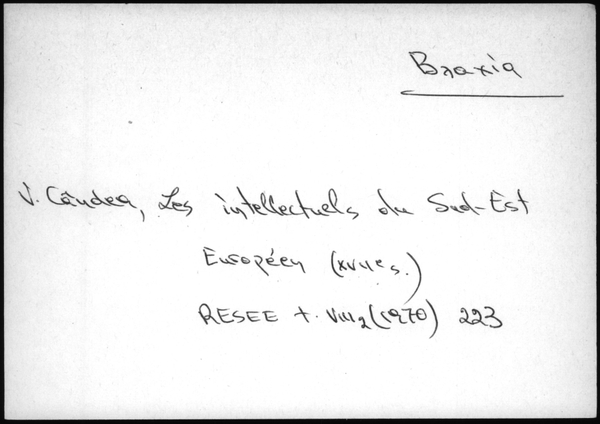 Braxia
V. Cândea, Les intellectuels du Sud-Est
Européen (XVIIe s.)
RESEE t. VIII2 (1970) 223